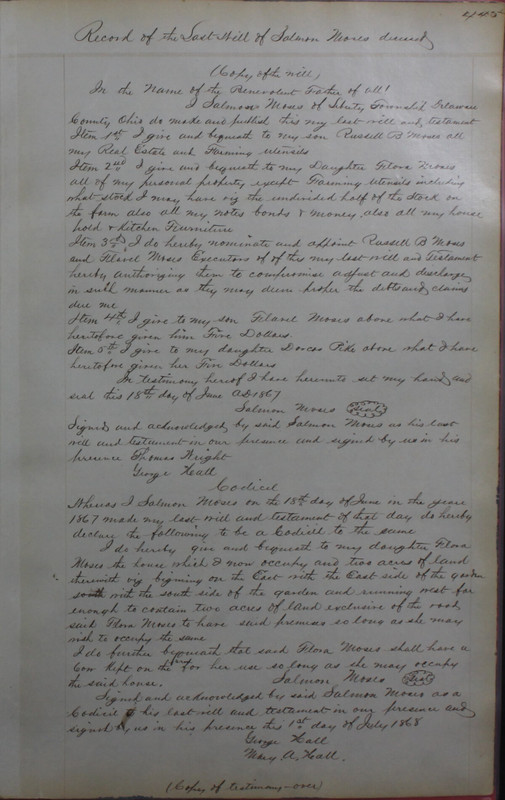 445
Record of the Last Will of Salmon Moses deceased
(Copy of the will,)
In the Name of the Benevolent Father of all!
I Salmon Moses of Liberty Township Delaware
County Ohio do make and publish this my last will and testament
Item 1st I give and bequeath to my son Russell B Moses all
my Real Estate and Farming utensils
Item 2nd I give and bequeath to my Daughter Flora Moses
all of my personal property except Farming utensils including
what stock I may have viz the undivided half of the stock on
the farm also all my notes bonds & money. also all my house
hold & Kitchen Furniture
Item 3rd I do hereby nominate and appoint Russell B Moses
and Flavel Moses Executors of of this my last will and Testament
hereby authorizing them to compromise adjust and discharge
in such manner as they may deem proper the debts and claims
due me
Item 4th I give to my son Flavel Moses above what I have
heretofore given him Five Dollars.
Item 5th I give to my daughter Dorcas Pike above what I have
heretofore given her Five Dollars
In testimony hereof I have hereunto set my hand and
seal this 18th day of June AD 1867
Salmon Moses (Seal)
Signed and acknowledged by said Salmon Moses as his last
will and testament in our presence and signed by us in his
presence Thomas Wright
George Hall
Codicil
Whereas I Salmon Moses on the 18th day of June in the year
1867 made my last will and testament of that day do hereby
declare the following to be a Codicil to the same
I do hereby give and bequeath to my daughter Flora
Moses the house which I now occupy and two acres of land
therewith viz begining on the East with the East side of the garden
south with the south side of the garden and running west far
enough to contain two acres of land exclusive of the road
said Flora Moses to have said premises so long as she may
wish to occupy the same
I do further bequeath that said Flora Moses shall have a
Cow Kept on the farm for her use so long as she may occupy
the said house. Salmon Moses (Seal)
Signed and acknowledged by said Salmon Moses as a
Codicil to his last will and testament in our presence and
signed by us in his presence this 1st day of July 1868
George Hall
Mary A. Hall.
(Copy of testimony-over)